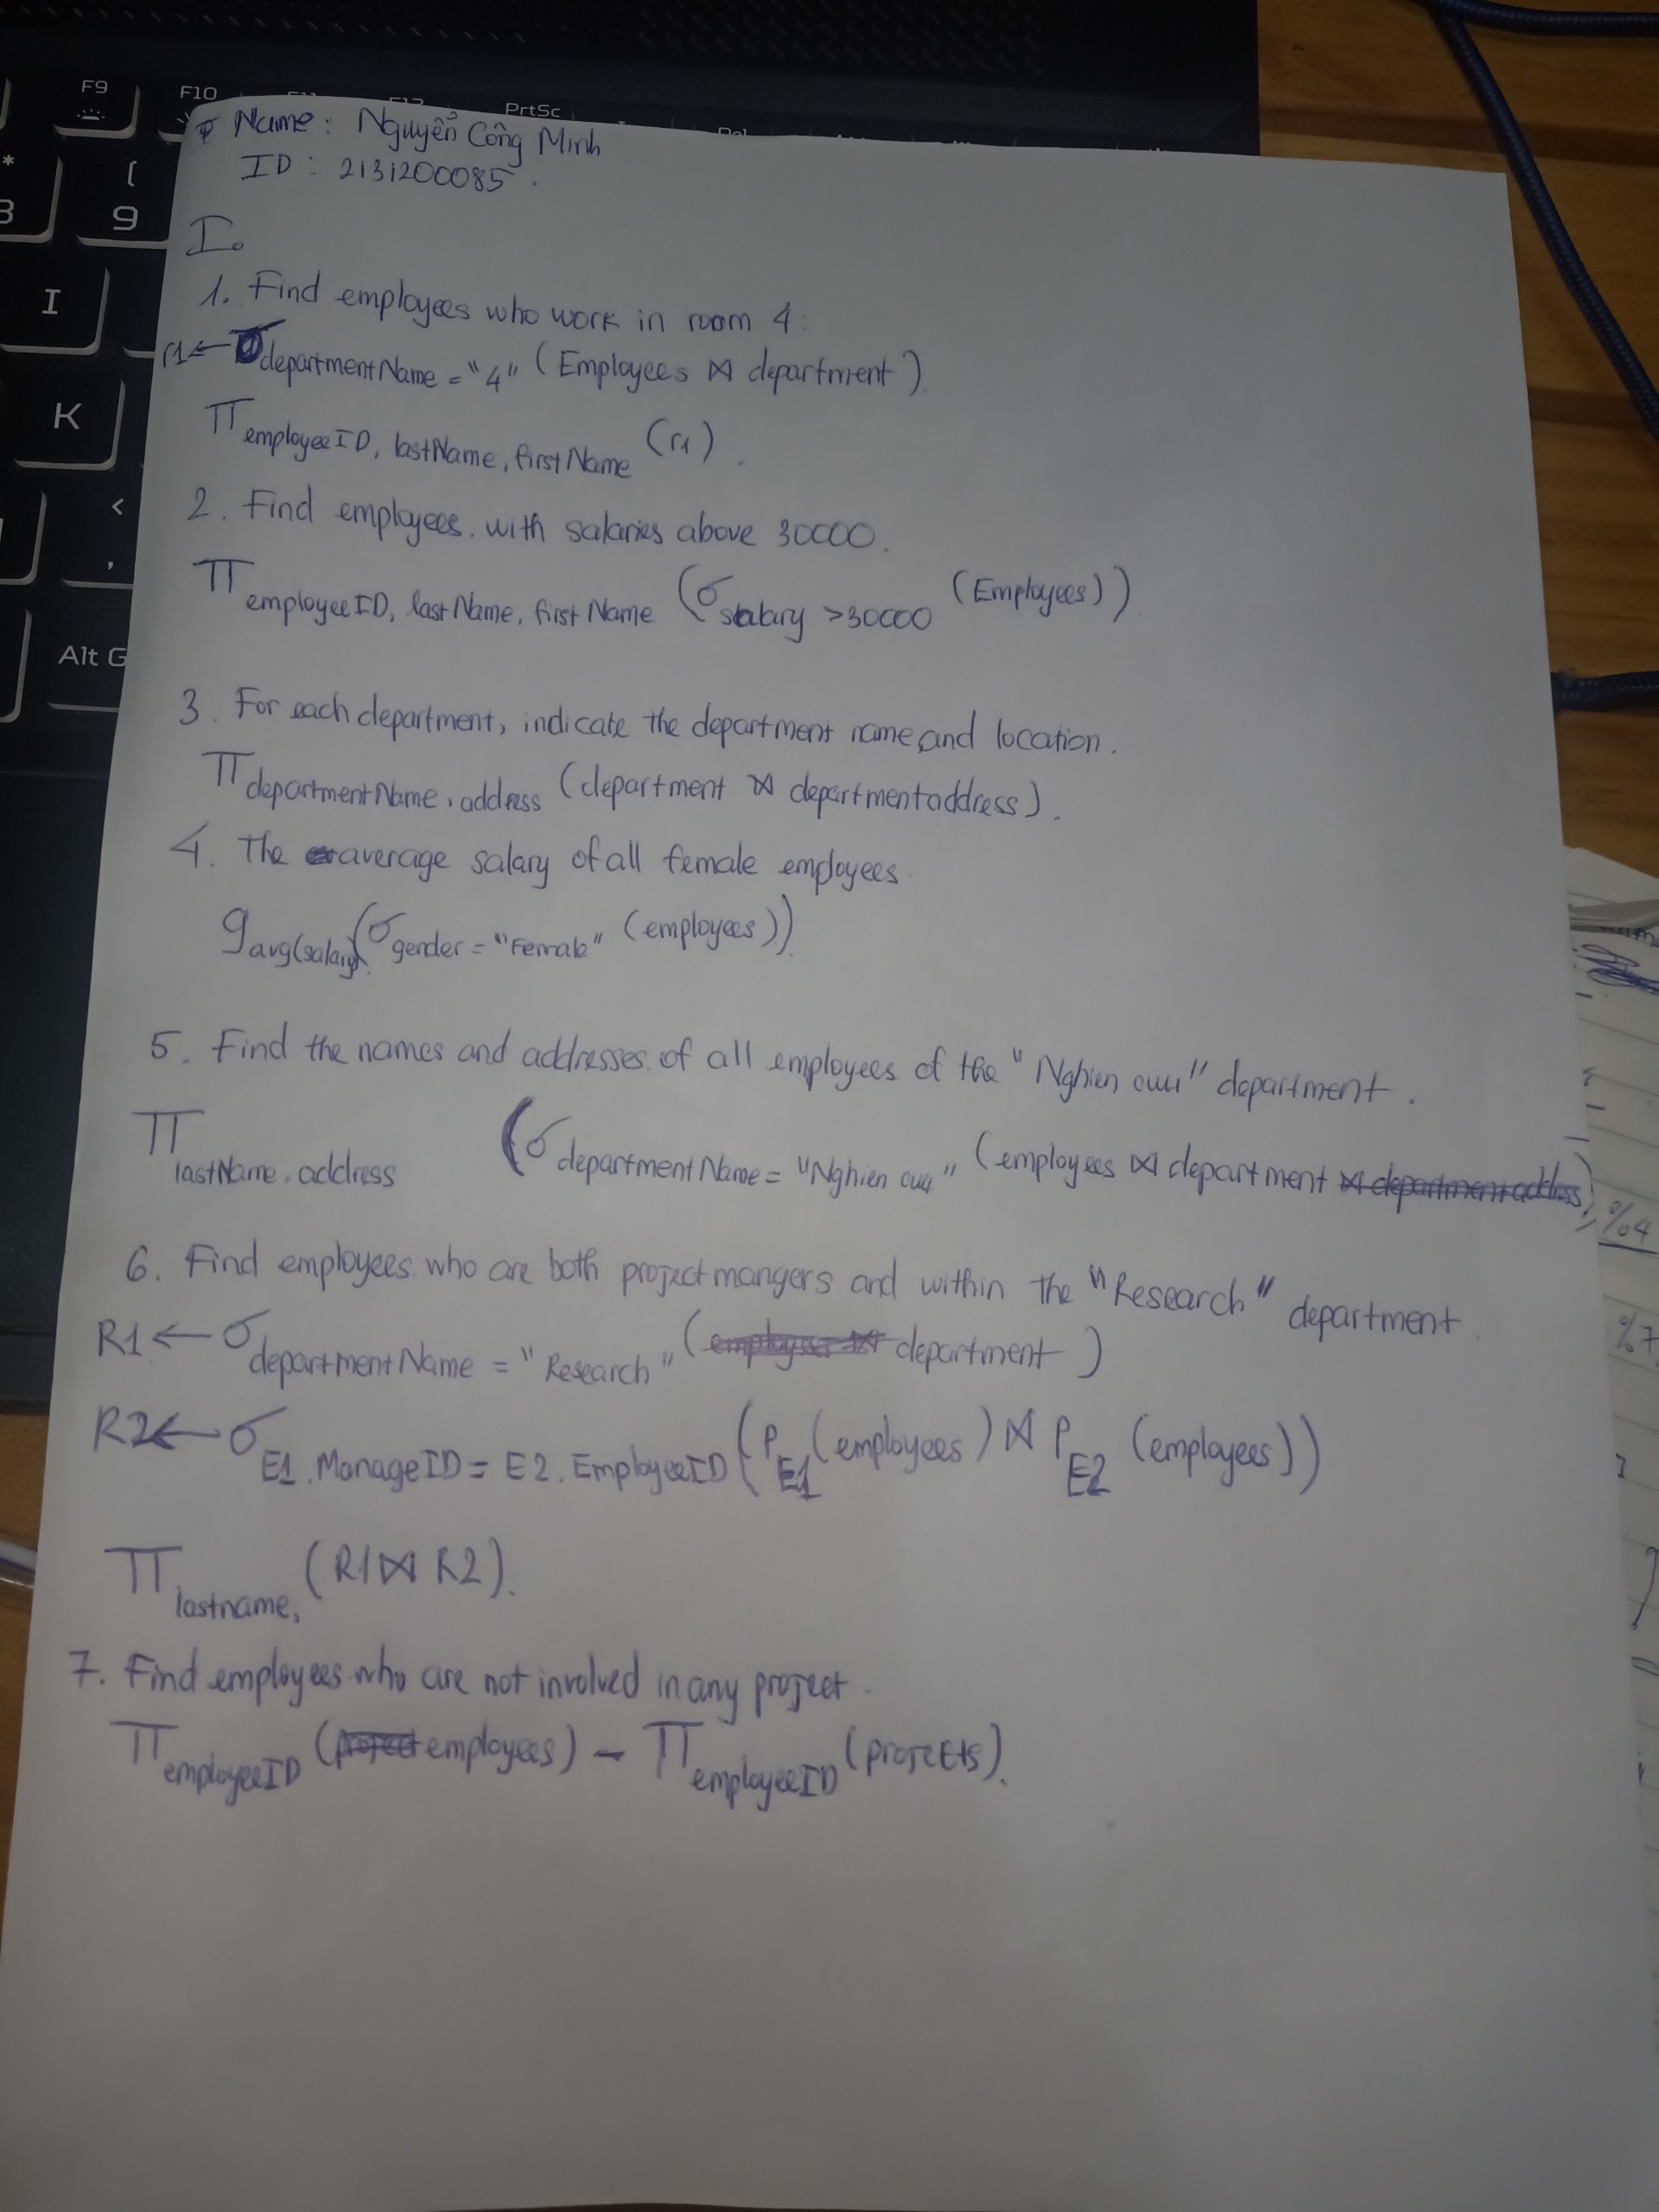 F9
F10
PrtSc
(
9
I
K
<
,
Alt G
Name: Nguyễn Công Minh
ID: 2131200085.
I.
1. Find employees who work in room 4:
r1 ← σ departmentName = "4" (Employees ⋈ department).
π employeeID, lastName, firstName (r1).
2. Find employees with salaries above 30000.
π employeeID, lastName, firstName (σ salary >30000 (Employees))
3. For each department, indicate the department name and location.
π departmentName, address (department ⋈ departmentaddress).
4. The average salary of all female employees.
g avg(salary) (σ gender = "Female" (employees)).
5. Find the names and addresses of all employees of the "Nghien cuu" department.
π lastName, address (σ departmentName = "Nghien cuu" (employees ⋈ department ⋈ departmentaddress)
6. Find employees who are both project mangers and within the "Research" department.
R1 ← σ departmentName = "Research" (employees ⋈ department)
R2 ← σ E1.ManageID = E2.EmployeeID (ρ E1 (employees) ⋈ ρ E2 (employees))
π lastname, (R1 ⋈ R2).
7. Find employees who are not involved in any project.
π employeeID (project employees) - π employeeID (projects).
%4
%7